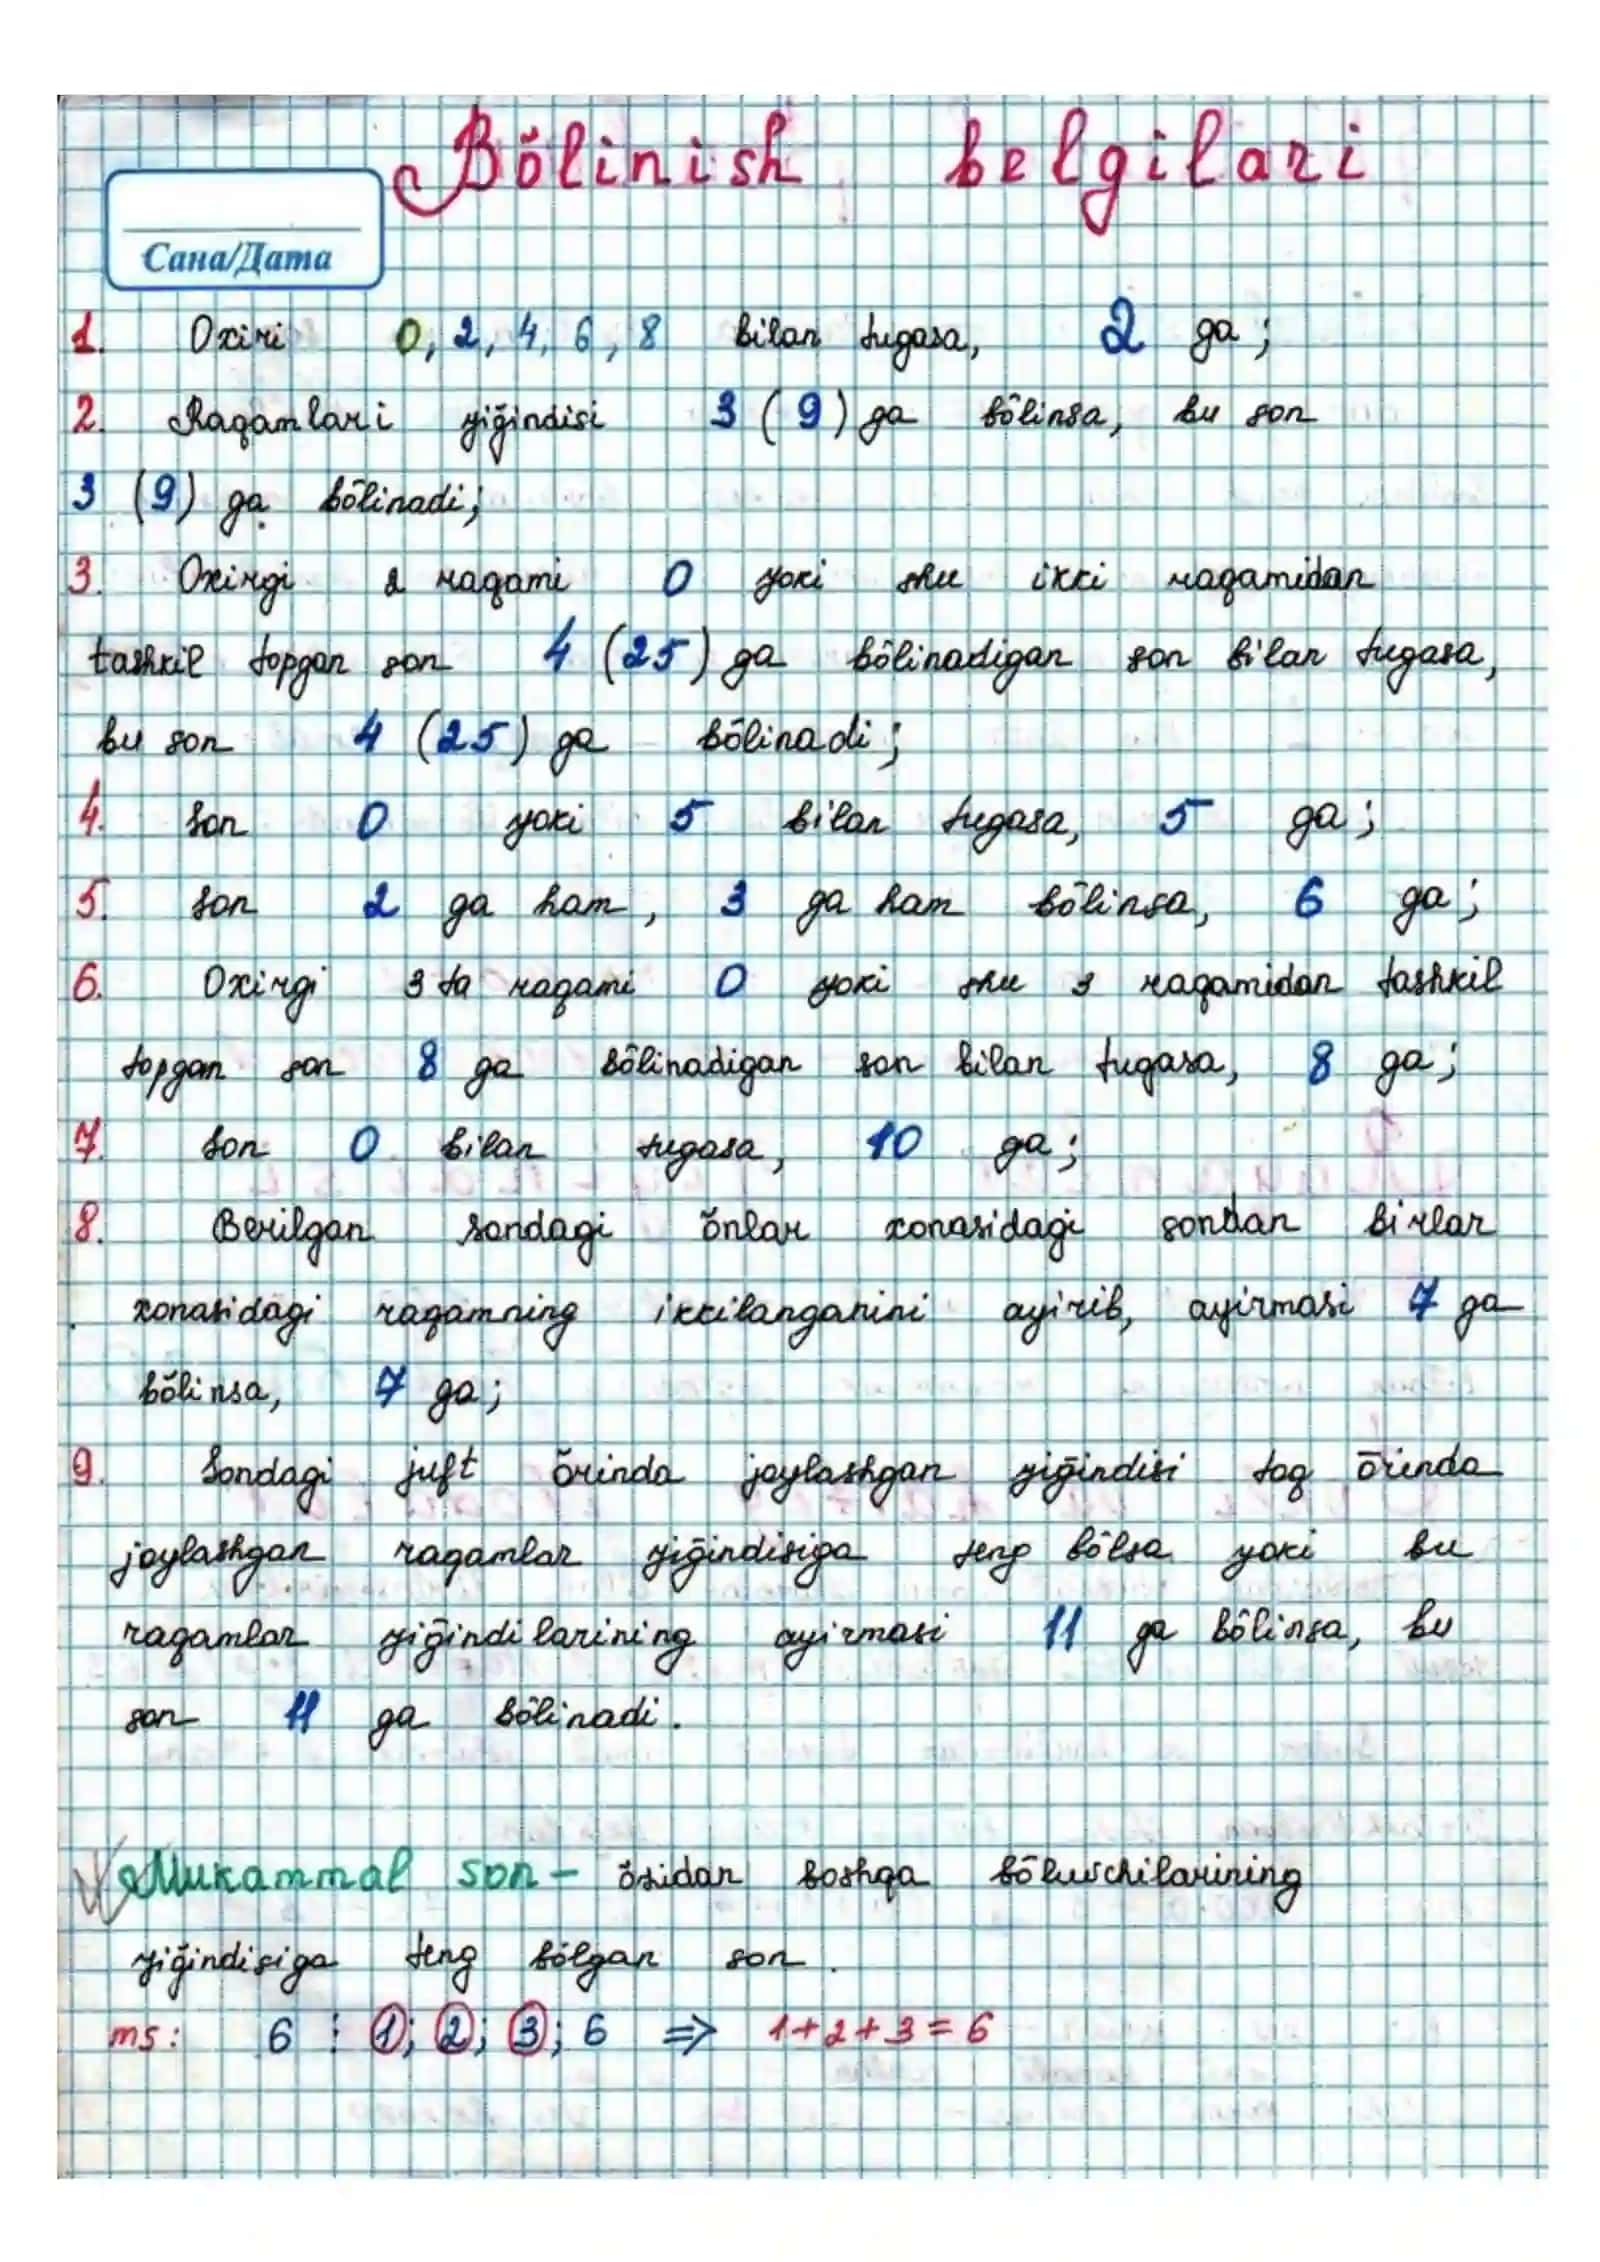 Bŏlinish belgilari
Сана/Дата
1. Oxiri 0, 2, 4, 6, 8 bilan tugasa, 2 ga;
2. Raqamlari yiğindisi 3 (9) ga bôlinsa, bu son
3 (9) ga bôlinadi;
3. Oxirgi 2 raqami 0 yoki shu ikki raqamidan
tashkil topgan son 4 (25) ga bôlinadigan son bilan tugasa,
bu son 4 (25) ga bôlinadi;
4. Son 0 yoki 5 bilan tugasa, 5 ga;
5. Son 2 ga ham, 3 ga ham bôlinsa, 6 ga;
6. Oxirgi 3 ta raqami 0 yoki shu 3 raqamidan tashkil
topgan son 8 ga bôlinadigan son bilan tugasa, 8 ga;
7. Son 0 bilan tugasa, 10 ga;
8. Berilgan sondagi ŏnlar xonasidagi sondan birlar
xonasidagi raqamning ikkilanganini ayirib, ayirmasi 7 ga
bŏlinsa, 7 ga;
9. Sondagi juft ŏrinda joylashgan yiğindisi toq ōrinda
joylashgan raqamlar yiğindisiga teng bôlsa yoki bu
raqamlar yiğindilarining ayirmasi 11 ga bôlinsa, bu
son 11 ga bôlinadi.
Mukammal son - ŏzidan boshqa bŏluvchilarining
yiğindisiga teng bŏlgan son.
ms: 6 ⋮ 1; 2; 3; 6 ⇒ 1+2+3=6